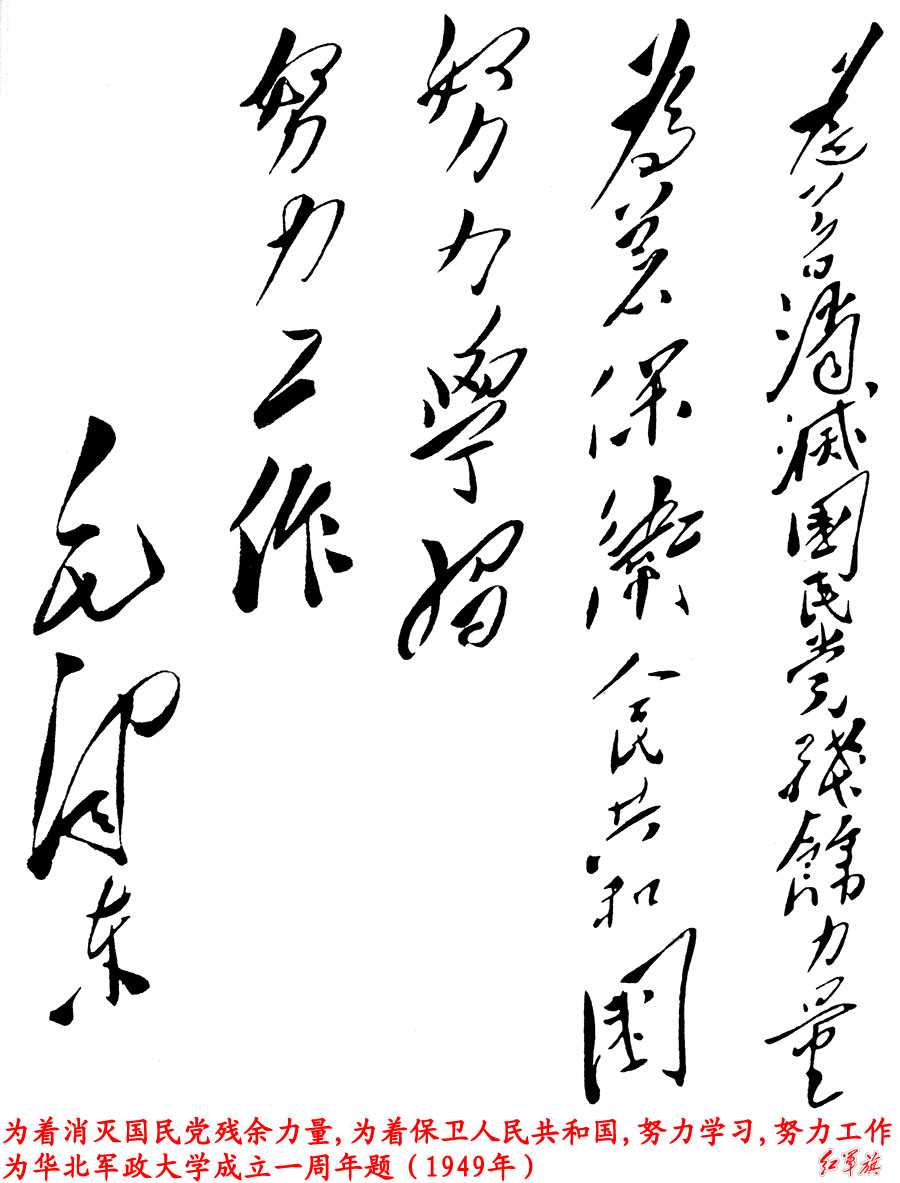 为着消灭国民党残餘力量
為着保衛人民共和國
努力學習
努力工作
毛泽东
为着消灭国民党残余力量,为着保卫人民共和国,努力学习,努力工作
为华北军政大学成立一周年题（1949年）
红军旗